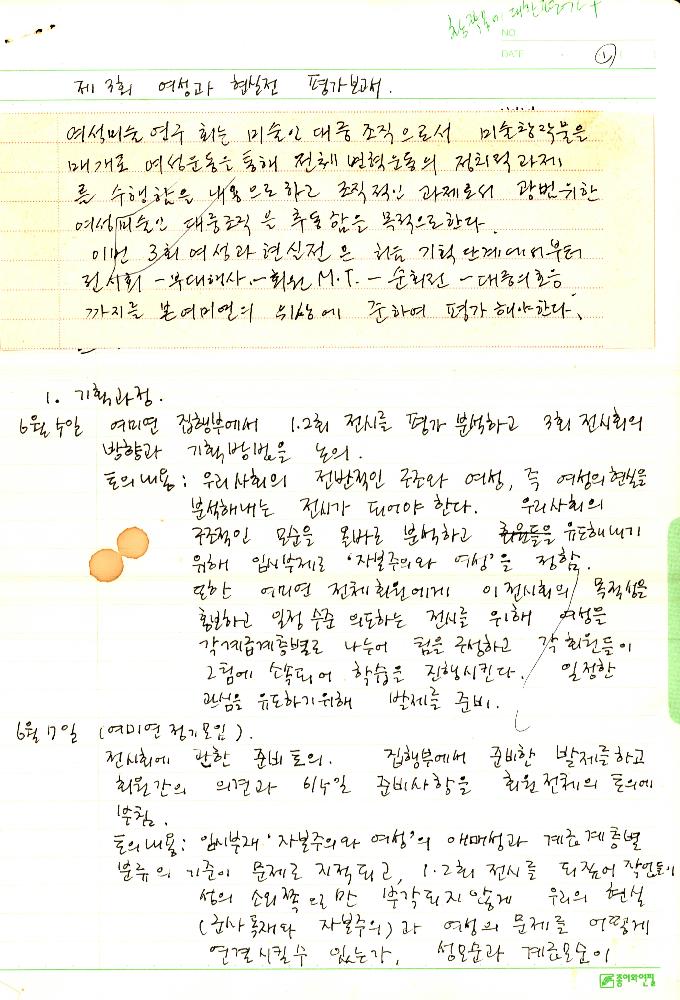 창작물에 대한 평가 +
NO
DATE
①
제 3회 여성과 현실전 평가보고서.
여성미술 연구 회는 미술인 대중 조직으로서 미술창작물을
매개로 여성운동을 통해 전체 변혁운동의 정치적 과제
를 수행함을 내용으로 하고 조직적인 과제로서 광범위한
여성미술인 대중조직 을 추동함을 목적으로한다.
이번 3회 여성과 현실전 은 처음 기획 단계에서부터
전시회 - 부대행사 - 회원 M.T. - 순회전 - 대중의 호응
까지를 본 여미연의 위상에 준하여 평가해야한다.
1. 기획과정.
6월 4일 여미연 집행부에서 1.2회 전시를 평가 분석하고 3회 전시회의
방향과 기획방법을 논의.
토의내용 : 우리사회의 전반적인 구조와 여성, 즉 여성의 현실을
분석해내는 전시가 되어야 한다. 우리사회의
구조적인 모순을 올바로 분석하고 회원들을 유도해내기
위해 임시부제로 '자본주의와 여성'을 정함.
또한 여미연 전체회원에게 이 전시회의 목적성을
홍보하고 일정 수준 의도하는 전시를 위해 여성을
각계급계층별로 나누어 팀을 구성하고 각 회원들이
그팀에 소속되어 학습을 진행시킨다. 일정한
관심을 유도하기위해 발제를 준비.
6월 17일 (여미연 정기모임).
전시회에 관한 준비 토의. 집행부에서 준비한 발제를하고
회원간의 의견과 6/4일 준비사항을 회원전체의 토의에
부침.
토의내용 : 임시부재 '자본주의와 여성'의 애매성과 계급계층별
분류의 기준이 문제로 지적되고, 1.2회 전시를 되짚어 작업들이
성의 소외쪽으로만 부각되지 않게 우리의 현실
(군사독재와 자본주의)과 여성의 문제를 어떻게
연결시킬수 있는가, 성모순과 계급모순이
종이와연필